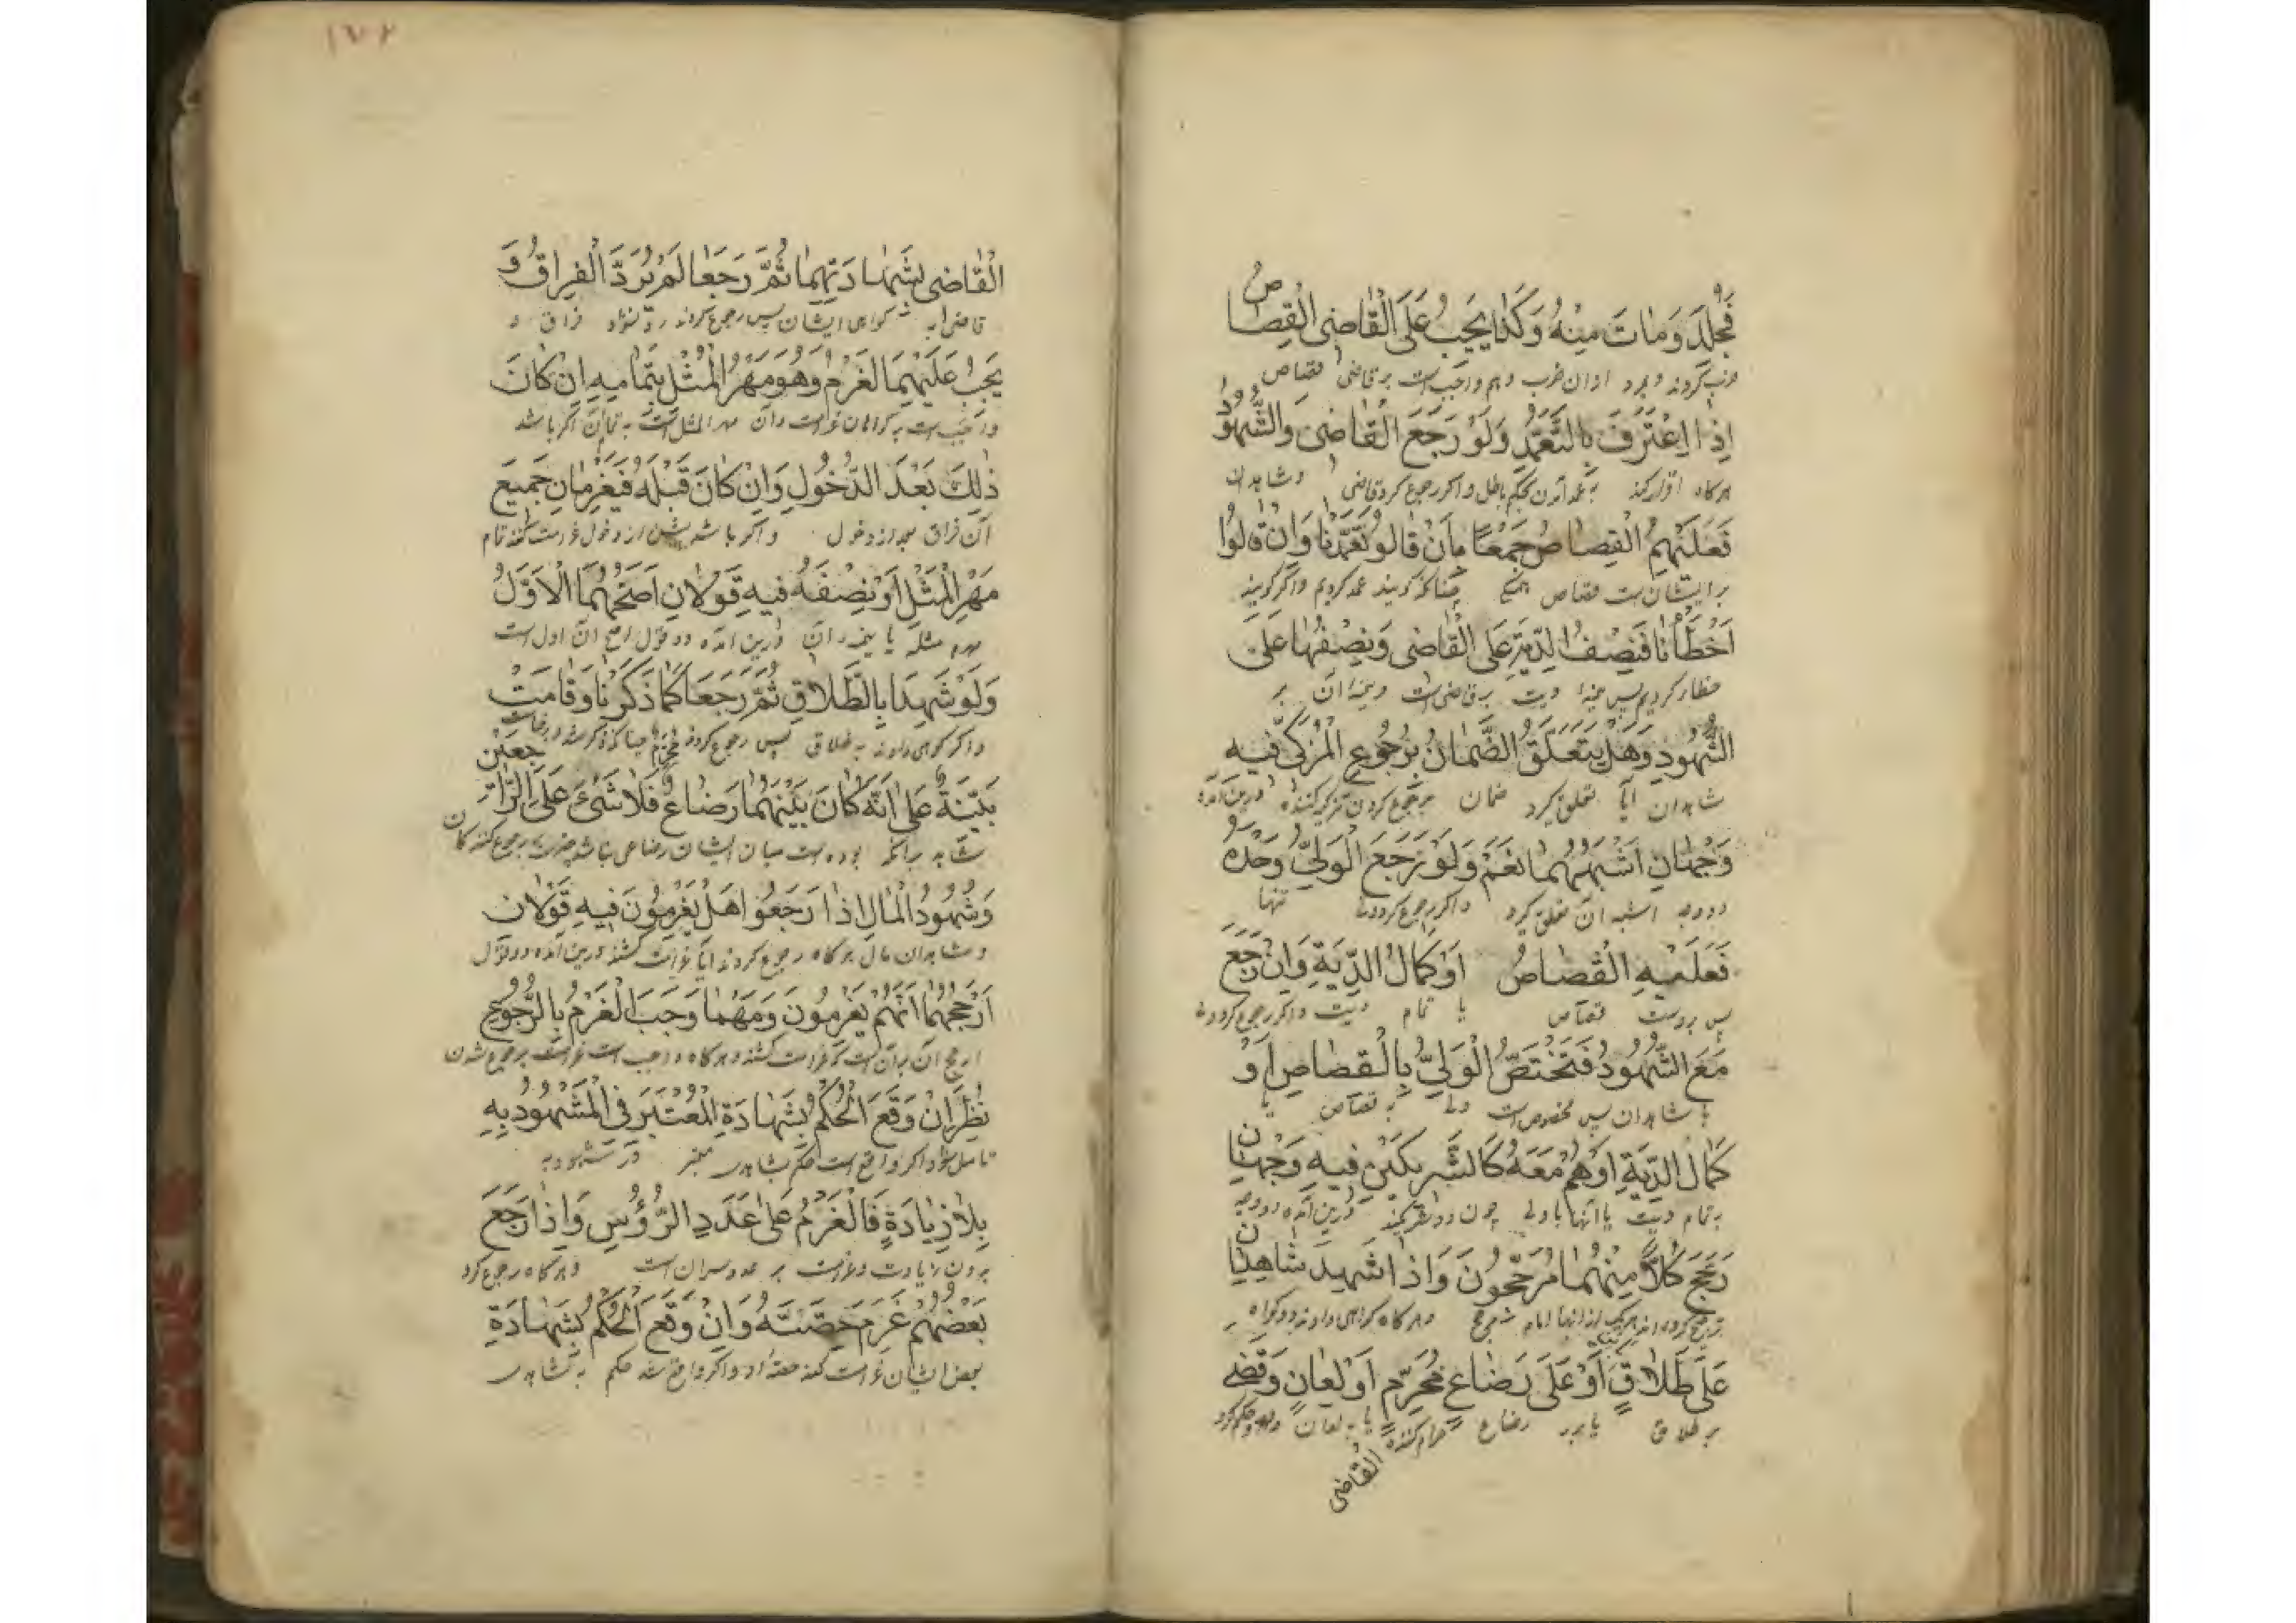 فَجُلِدَ وَمَاتَ مِنْهُ وَكَذَا يَجِبُ عَلَى الْقَاضِى الْقِصَاصُ
ضرب کردند و بمرد ازان ضرب وهم واجبست بر قاضی قصاص
اِذَا اعْتَرَفَ بِالتَّعَمُّدِ وَلَوْ رَجَعَ الْقَاضِى وَالشُّهُودُ
هرکاه اقرار کند به عمد حکم باطل واکر رجوع کرد قاضی و شاهدان
فَعَلَيْهِمُ الْقِصَاصُ جَمِيْعًا بِاَنْ قَالُوا تَعَمَّدْنَا وَاِنْ قَالُوا
بر ایشانست قصاص چنانکه کویند عمد کردیم واکر کویند
اَخْطَأْنَا فَنِصْفُ الدِّيَةِ عَلَى الْقَاضِى وَنِصْفُهَا عَلَى
خطا کردیم پس نیمهٔ دیت بر قاضی است و نیمهٔ آن بر
الشُّهُودِ وَهَلْ يَتَعَلَّقُ الضَّمَانُ بِرُجُوعِ الْمُزَكِّى فِيهِ
شاهدان آیا تعلق کیرد ضمان برجوع کردن تزکیه کننده درین آمده
وَجْهَانِ اَشْبَهُهُمَا نَعَمْ وَلَوْ رَجَعَ الْوَلِىُّ وَحْدَهُ
دو وجه اشبه آن تعلق کیرد واکر رجوع کرد ولی تنها
فَعَلَيْهِ الْقِصَاصُ اَوْ كَمَالُ الدِّيَةِ وَاِنْ رَجَعَ
پس بروست قصاص یا تمام دیت واکر رجوع کرد
مَعَ الشُّهُودِ فَتَخْتَصُّ الْوَلِىُّ بِالْقِصَاصِ اَوْ
با شاهدان پس مخصوص است ولی به قصاص یا
كَمَالُ الدِّيَةِ اَوْهُمْ مَعَهُ كَالشَّرِيكَيْنِ فِيهِ وَجْهَانِ
بتمام دیت یا آنها با ولی چون دو شریکند درین آمده دو وجه
رَجَّحَ كُلًّا مِنْهُمَا مُرَجِّحُونَ وَاِذَا شَهِدَ شَاهِدَانِ
ترجیح کرده اند هریک از آنها وهرکاه کواهی دادند دو کواه
عَلَى طَلَاقٍ اَوْ عَلَى رَضَاعٍ مُحَرِّمٍ اَوْ لِعَانٍ وَقَضَى
بر طلاق یا بر رضاع حرام کننده یا به لعان و حکم کرد
القاضى
١٦٠٢
الْقَاضِى بِشَهَادَتِهِمَا ثُمَّ رَجَعَا لَمْ يُرَدَّ الْفِرَاقُ وَ
قاضی به کواهی ایشان پس رجوع کردند رد نشود فراق و
يَجِبُ عَلَيْهِمَا الْغَرْمُ وَهُوَ مَهْرُ الْمِثْلِ بِتَمَامِهِ اِنْ كَانَ
واجبست بر کواهان غرامت وآن مهر المثل است به تمام آن اکر باشد
ذٰلِكَ بَعْدَ الدُّخُولِ وَاِنْ كَانَ قَبْلَهُ فَيَغْرِمَانِ جَمِيعَ
آن فراق بعد از دخول واکر باشد پیش از دخول غرامت کنند تمام
مَهْرِ الْمِثْلِ اَوْ نِصْفَهُ فِيهِ قَوْلَانِ اَصَحُّهُمَا الْاَوَّلُ
مهر مثله یا نیمه آن درین آمده دو قول اصح آن اول است
وَلَوْ شَهِدَا بِالطَّلَاقِ ثُمَّ رَجَعَا كَمَا ذَكَرْنَا وَقَامَتْ
واکر کواهی دادند به طلاق پس رجوع کردند چنانکه ذکر شد و برخاست
بَيِّنَةٌ عَلَى اَنَّهُ كَانَ بَيْنَهُمَا رَضَاعٌ مُحَرِّمٌ فَلَا شَىْءَ عَلَى الرَّاجِعَيْنِ
شاهد برآنکه بوده است میان ایشان رضاعی نباشد رجوع کنندکان
وَشُهُودُ الْمَالِ اِذَا رَجَعُوا هَلْ يَغْرِمُونَ فِيهِ قَوْلَانِ
و شاهدان مال هرکاه رجوع کردند آیا غرامت کشند درین آمده دو قول
اَرْجَحُهُمَا اَنَّهُمْ يَغْرِمُونَ وَمَهْمَا وَجَبَ الْغَرْمُ بِالرُّجُوعِ
ارجح آن برآنست که غرامت کشند وهرکاه واجب است غرامت برجوع شدن
نُظِرَ اِنْ وَقَعَ الْحُكْمُ بِشَهَادَةِ الْمُعْتَبَرِ فِى الْمَشْهُودِ بِهِ
تامل شود اکر واقع است حکم بشاهدی معتبر در مشهود به
بِلَا زِيَادَةٍ فَالْغَرْمُ عَلَى عَدَدِ الرُّؤُسِ وَاِذَا رَجَعَ
بدون زیادت وغرامت بر عدد سران است وهرکاه رجوع کرد
بَعْضُهُمْ غَرِمَ حِصَّتَهُ وَاِنْ وَقَعَ الْحُكْمُ بِشَهَادَةِ
بعض ایشان غرامت کشد حصهٔ او واکر واقع شد حکم به شاهدی